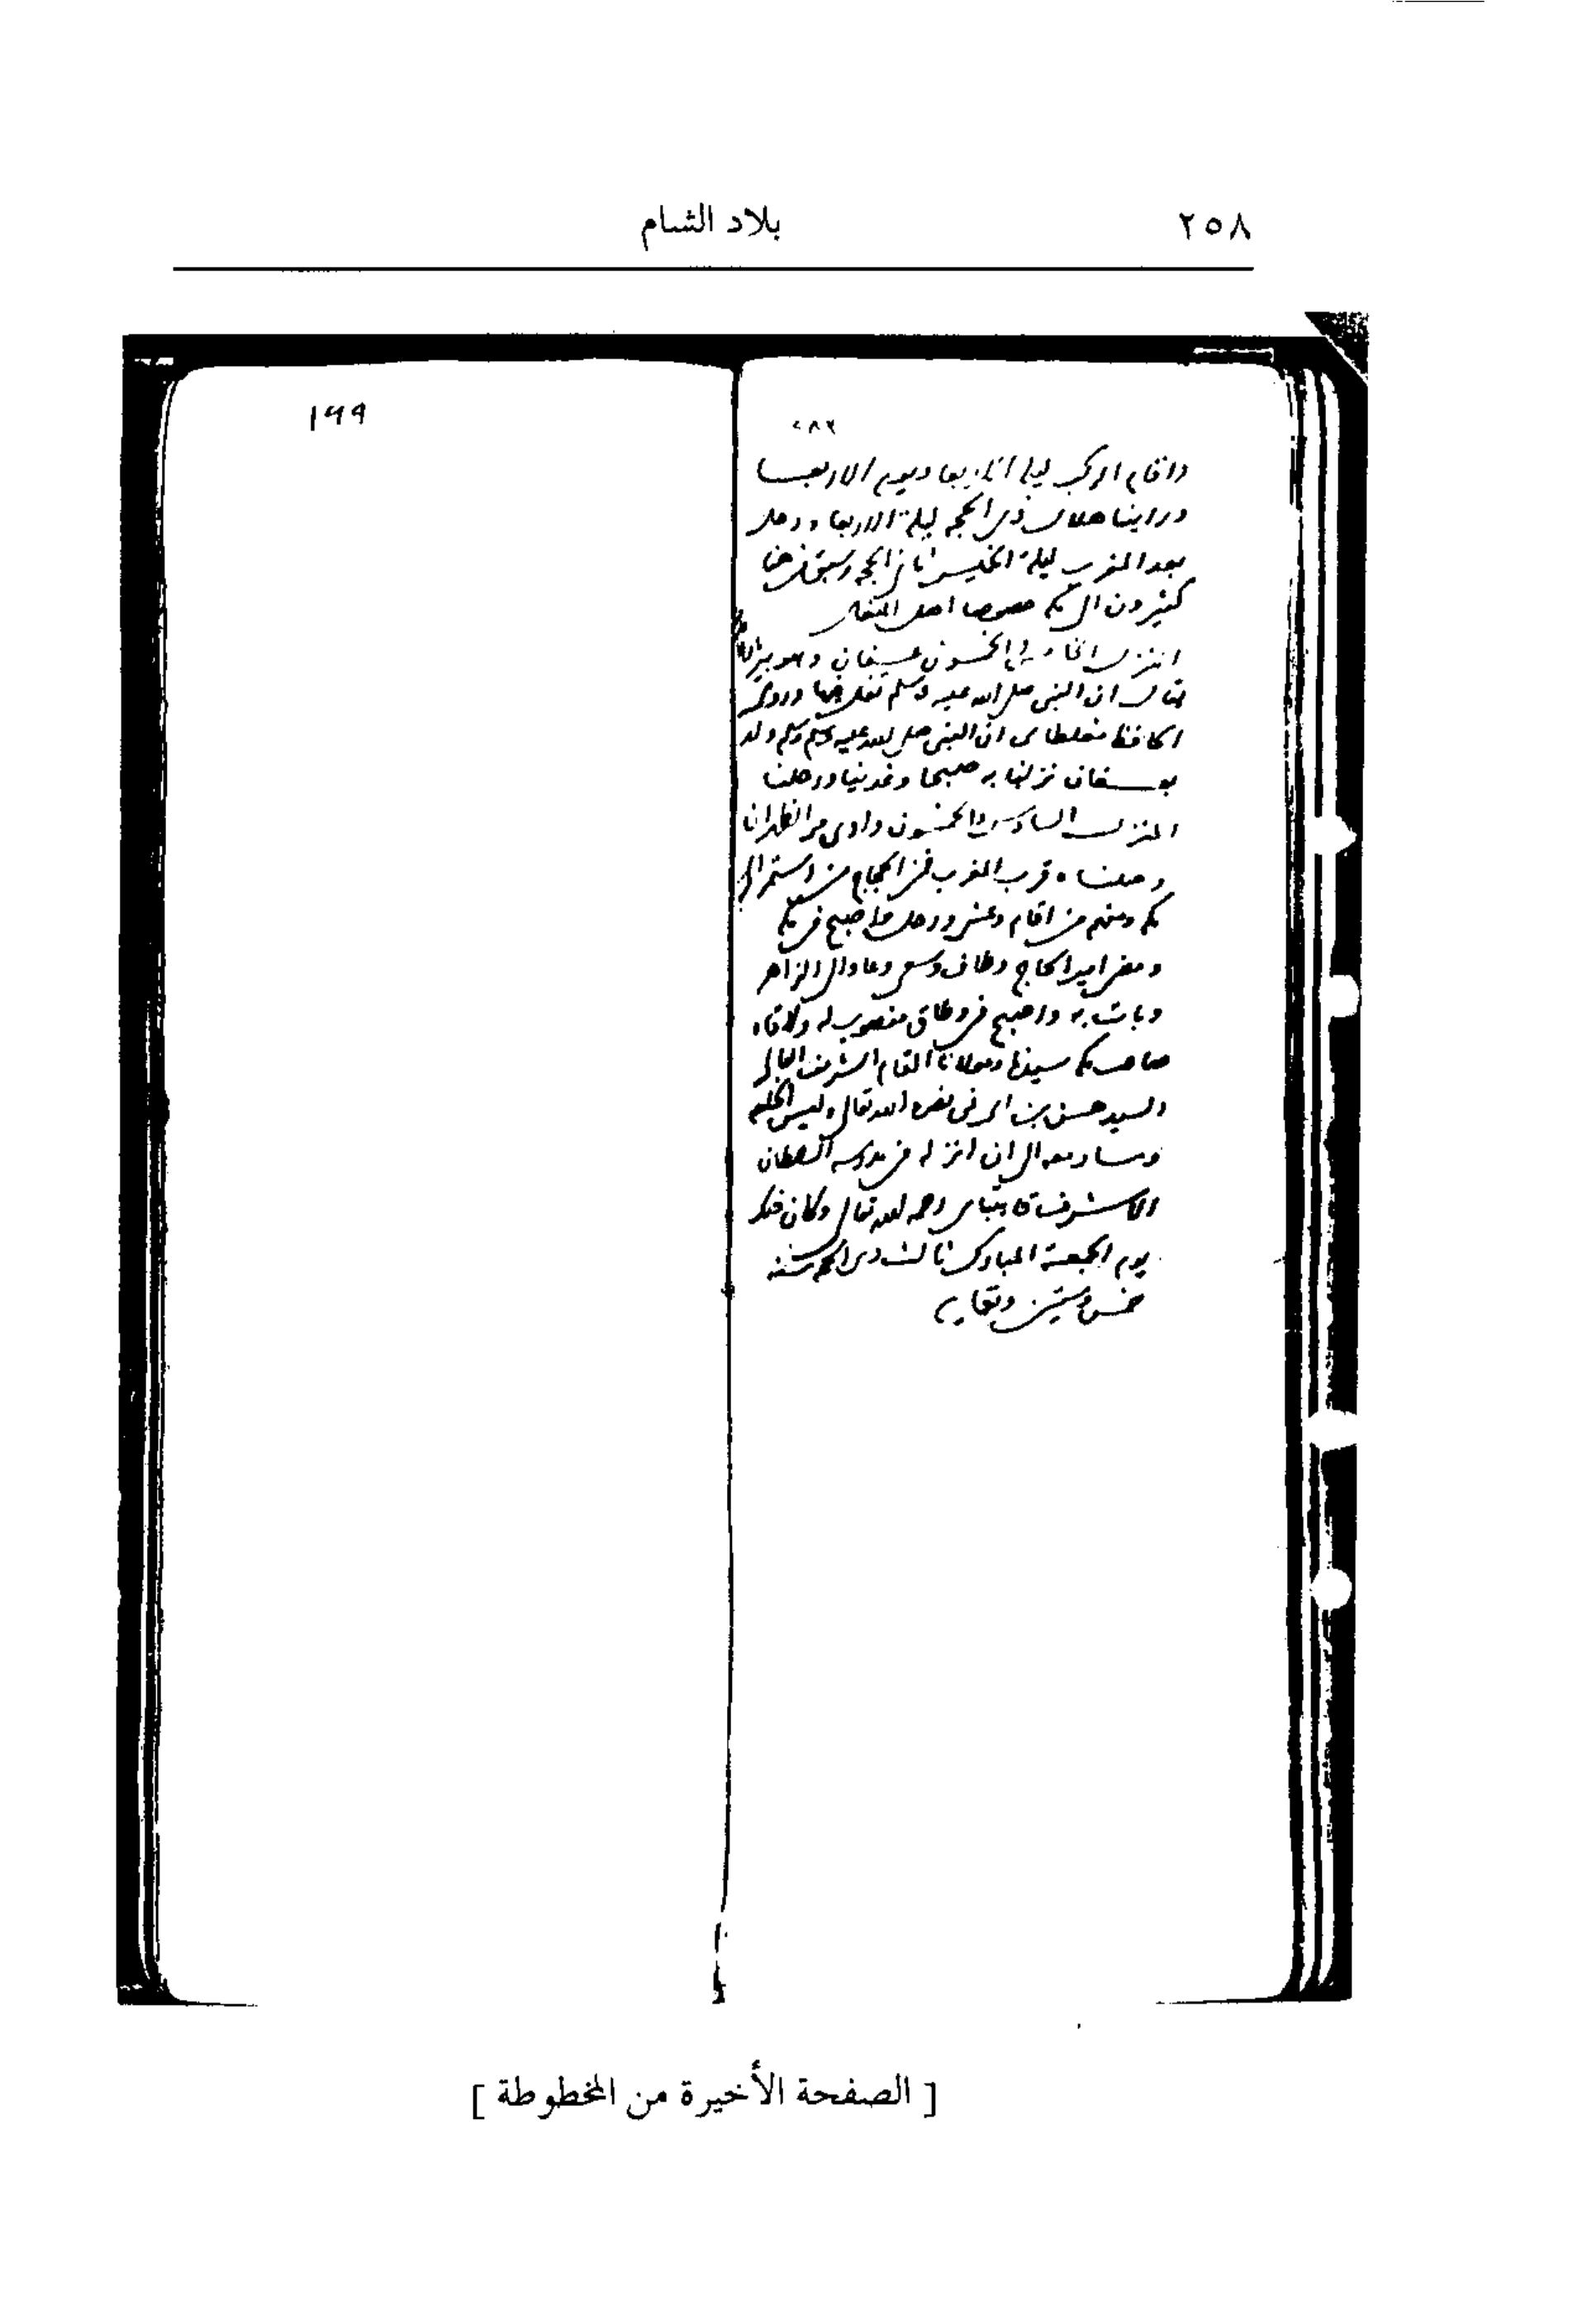 ٢٥٨
بلاد الشام
١٩٩
واقام الركب ليلة الاربعا ويوم الاربعا
وراينا هلال ذى الحجه ليلة الاربعا ورحل
بعد المغرب ليلة الخميس ثانى الحجه وسبق
كثيرون الى مكه خصوصا اهل
المنزل الخامس والخمسون عسفان وهو
يقال ان النبى صلى الله عليه وسلم تفل فيها
الحافظ مغلطاى ان النبى صلى الله عليه وسلم ولد
بعسفان نزلنا به صبحا وغدينا ورحلنا
المنزل السادس والخمسون وادى مر الظهران
وصلناه قرب المغرب فمن الحجاج من استمر الى
مكه ومنهم من اقام وعشى ورحل واصبح فى مكه
ومضى امير الحاج وطاف وسعى وعاد الى الزاهر
وبات به واصبح فى وطاق منصوب له ولاقاه
صاحب مكه سيدنا ومولانا المقام الشريف العالى
السيد حسن بن ابى نمى نصره الله تعالى ولبس الخلعه
وسار معه الى ان انزله فى مدرسه السلطان
الاشرف قايتباى رحمه الله تعالى وكان ذلك
يوم الجمعة المبارك ثالث ذى الحجه سنه
خمس وستين وتسعمايه
[ الصفحة الأخيرة من المخطوطة ]